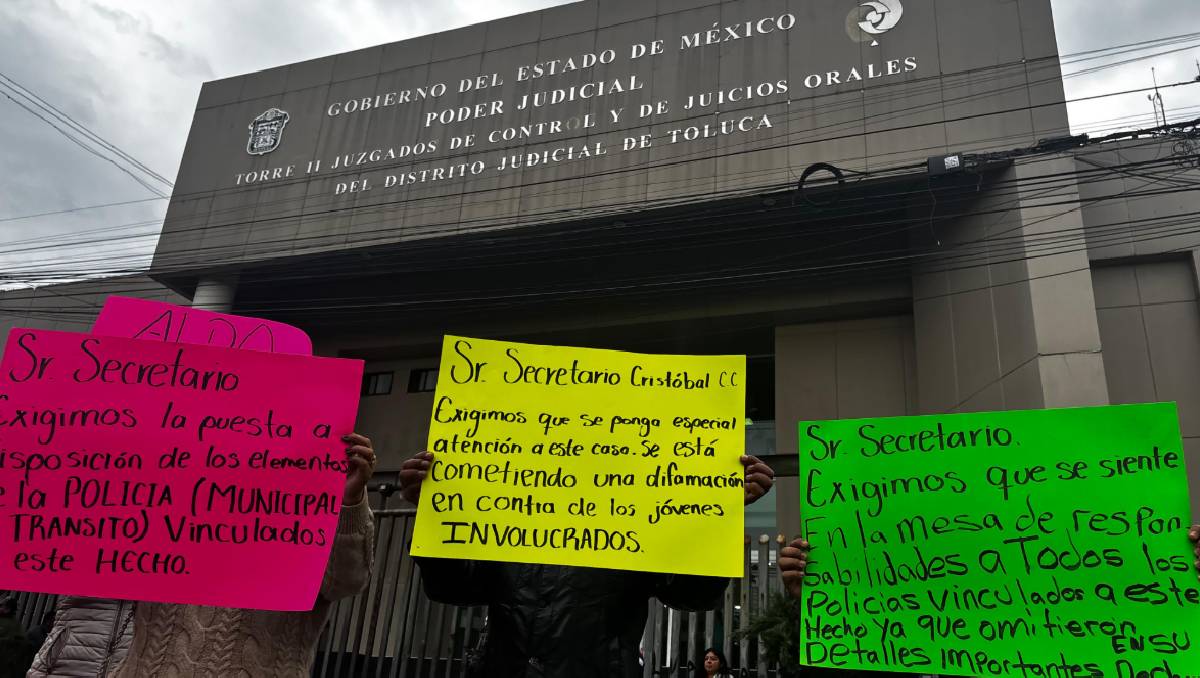 GOBIERNO DEL ESTADO DE MÉXICO
PODER JUDICIAL
TORRE II JUZGADOS DE CONTROL Y DE JUICIOS ORALES
DEL DISTRITO JUDICIAL DE TOLUCA
Sr. Secretario
Exigimos la puesta a
isposición de los elementos
e la POLICIA (MUNICIPAL
TRANSITO) Vinculados
este HECHO.
Sr. Secretario Cristóbal CC
Exigimos que se ponga especial
atención a este caso. Se está
cometiendo una difamación
en contra de los jóvenes
INVOLUCRADOS.
Sr. Secretario.
Exigimos que se siente
En la mesa de respon
sabilidades a Todos los
Policías vinculados a este
Hecho ya que omitieron
EN SU
Detalles importantes